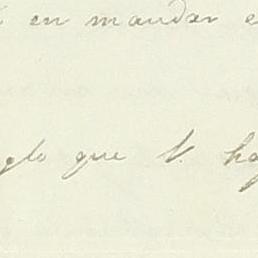 en mandar
glo que V. ha